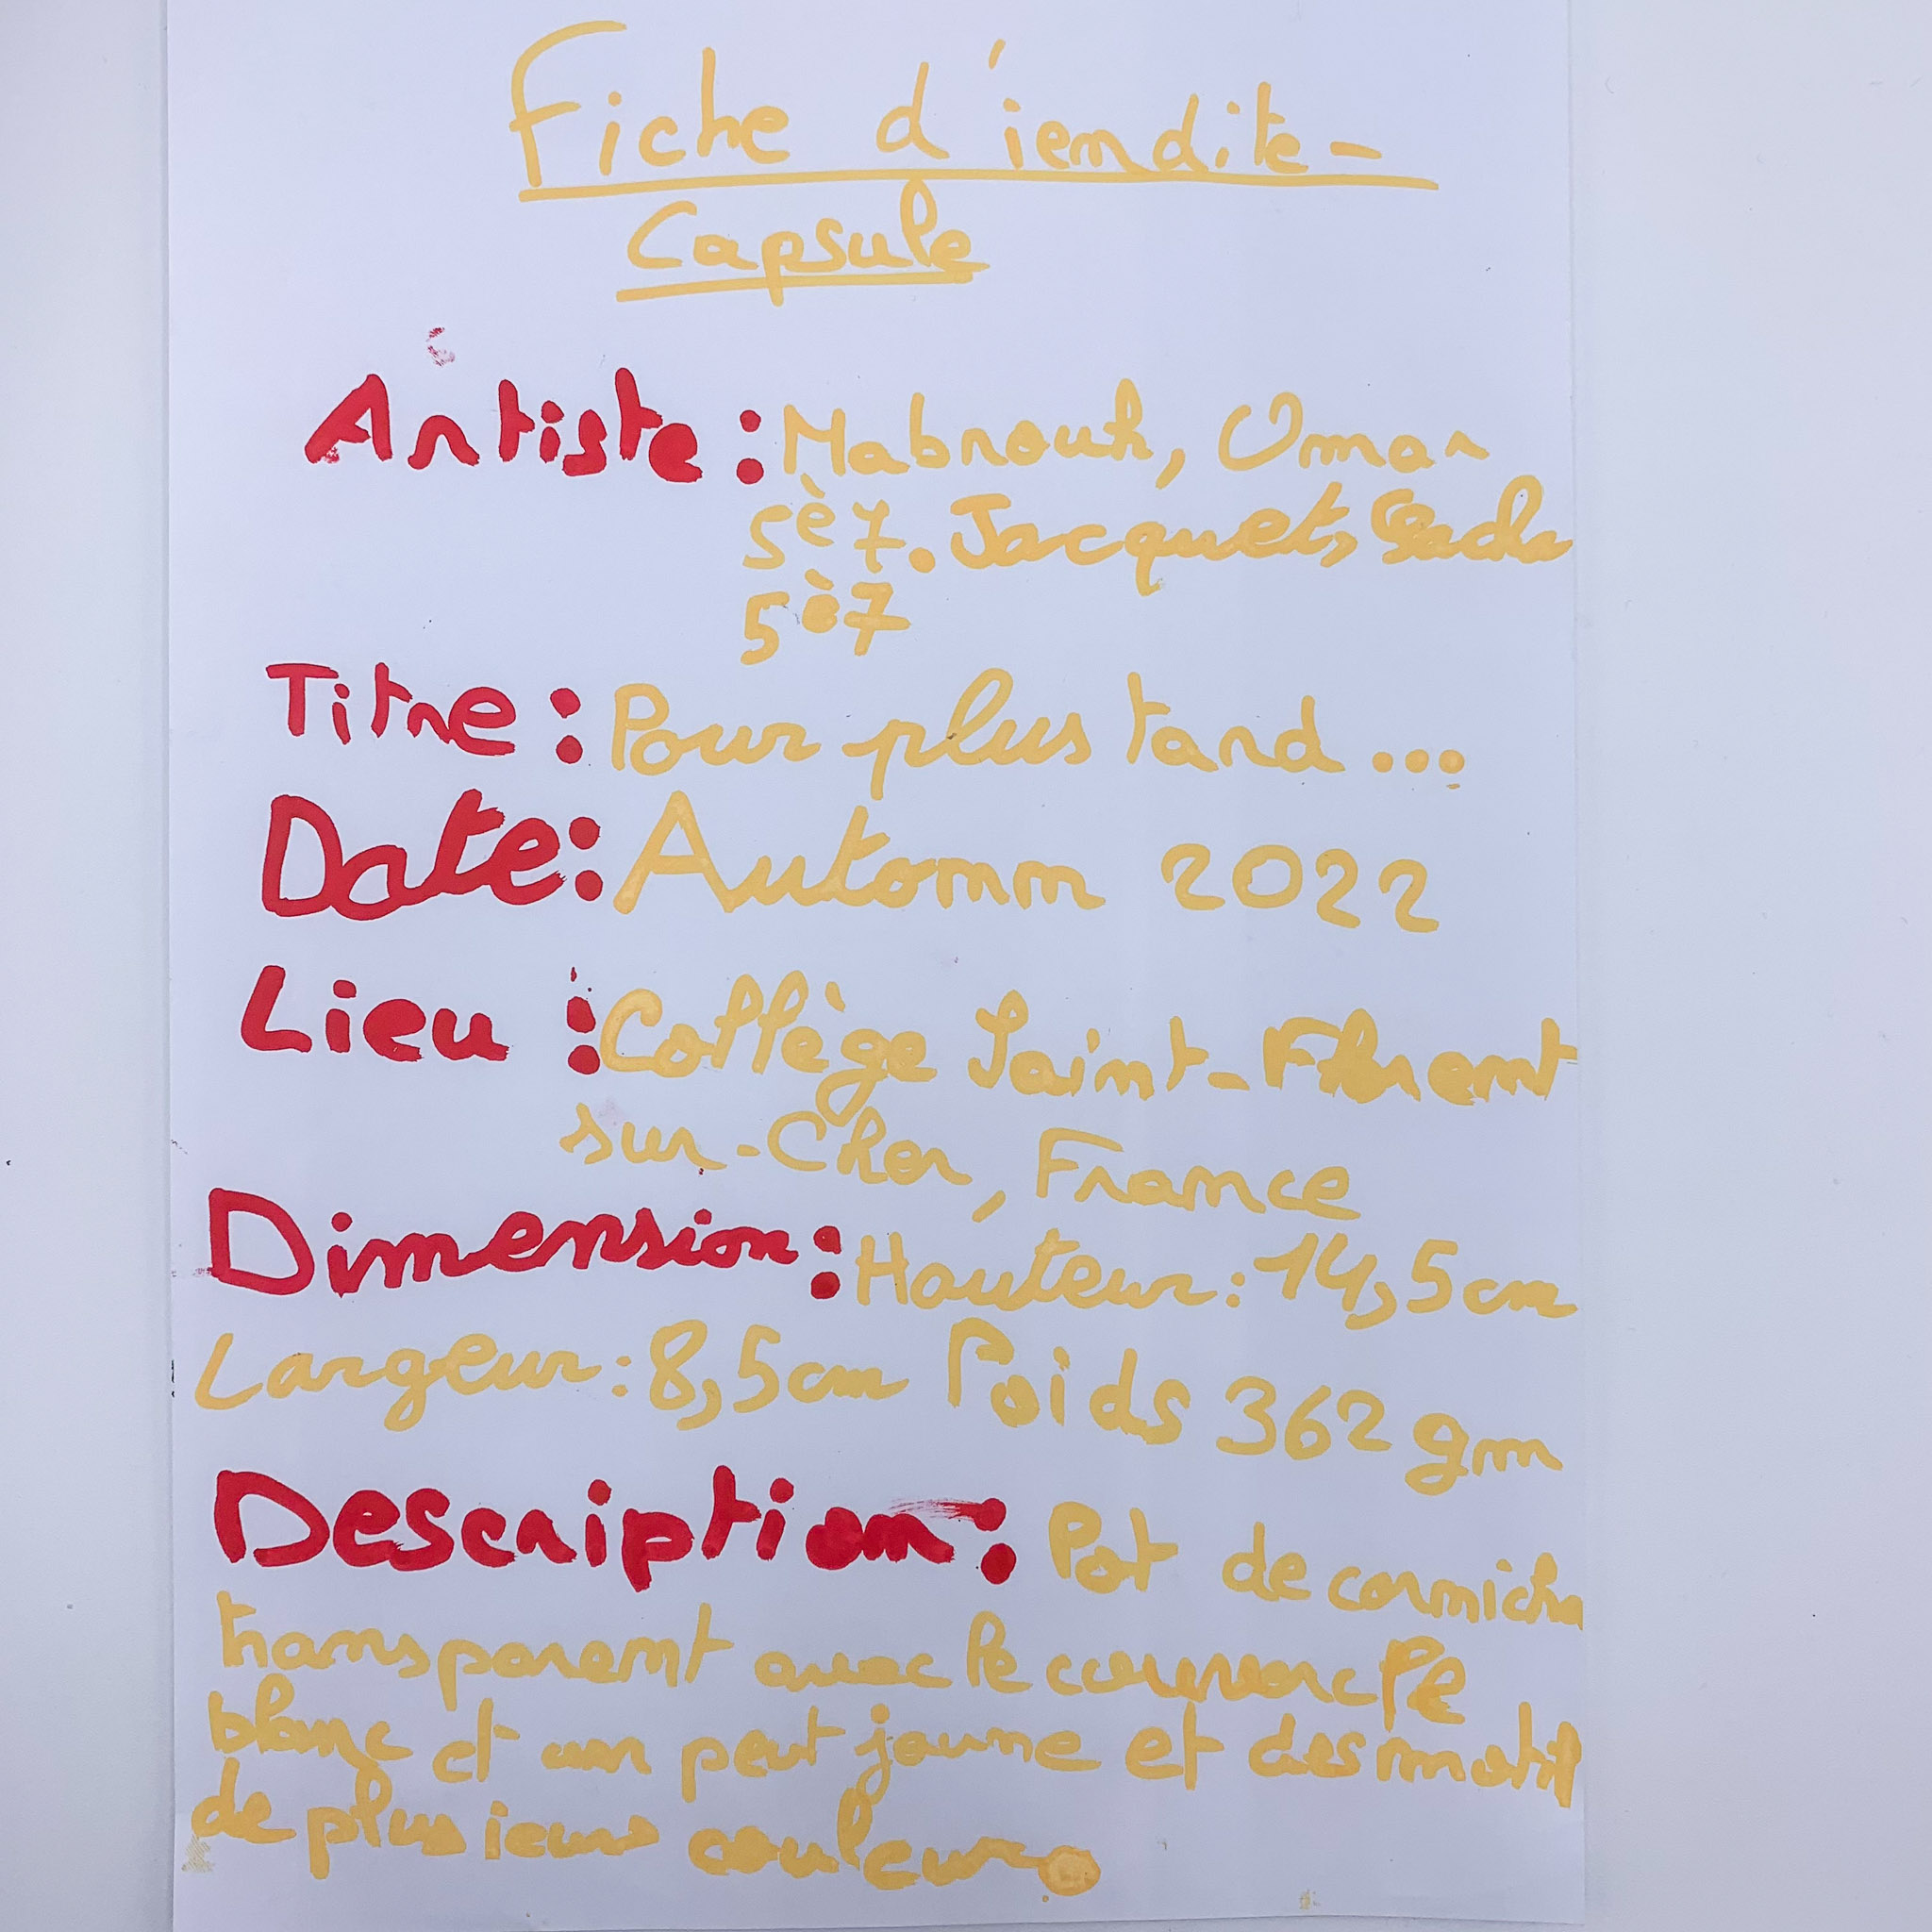 Fiche d'iendite-
Capsule
Artiste : Mabrouk, Omar
5è7. Jacquet, Sacha
5è7
Titre : Pour plus tard ...
Date : Automn 2022
Lieu : Collège Saint-Florent
sur-Cher, France
Dimension : Hauteur : 14,5cm
Largeur : 8,5cm Poids 362 gm
Description : Pot de cornicho
transparent avec le couvercle
blanc et un peut jaune et des motif
de plusieurs couleurs